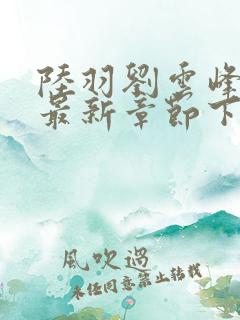 陸羽劉雲峰
最新章節下
風吹過
未经同意禁止转载